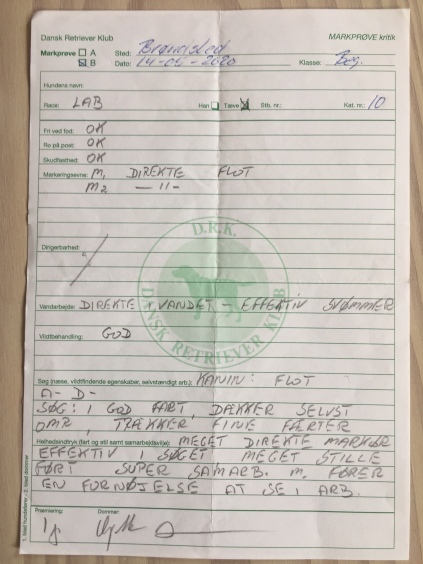 Dansk Retriever Klub
MARKPRØVE kritik
Markprøve A B Sted: Dato: Klasse: Beg.
Hundens navn:
Race: LAB Han Tæve Stb. nr.: Kat. nr.: 10
Fri ved fod: OK
Ro på post: OK
Skudfasthed: OK
Markeringsevne: M1 DIREKTE FLOT
M2 - 11 -
Dirigerbarhed:
Vandarbejde: DIREKTE I VANDET - EFFEKTIV SVØMMER
Vildtbehandling: GOD
Søg (næse, vildtfindende egenskaber, selvstændigt arb.): KANIN: FLOT
A - D -
SØG: I GOD FART, DÆKKER SELVST
OMR., TRÆKKER FINE FÆRTER
Helhedsindtryk (fart og stil samt samarbejdsvilje): MEGET DIREKTE MARKØR
EFFEKTIV I SØGET MEGET STILLE
FØRT SUPER SAMARB. M. FØRER
EN FORNØJELSE AT SE I ARB.
Præmiering: Dommer:
1. blad hundefører - 2. blad dommer
D.K.K.
DANSK RETRIEVER KLUB